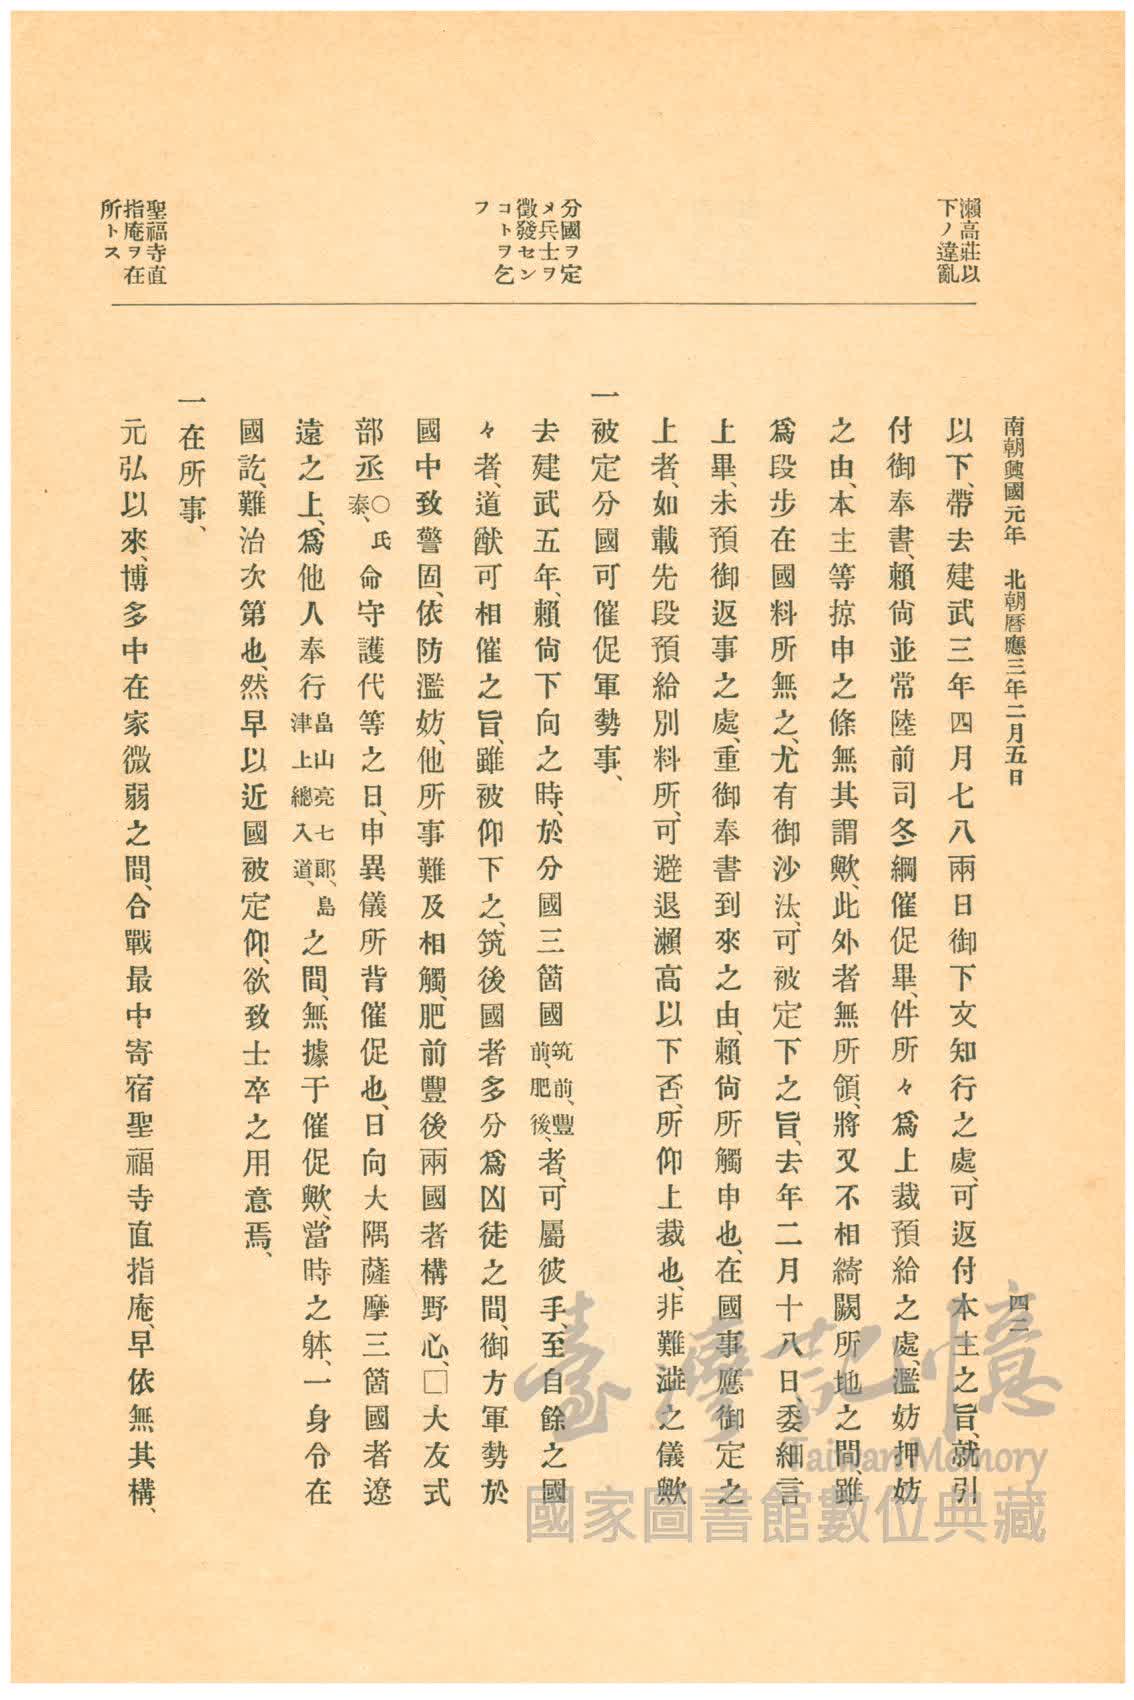 瀨高莊以
下ノ違亂
分國ヲ定
メ兵士ヲ
徵發セン
コトヲ乞
フ
聖福寺直
指庵ヲ在
所トス
南朝興國元年 北朝曆應三年二月五日
四二
以下、帶去建武三年四月七八兩日御下文知行之處、可返付本主之旨、就引
付御奉書、賴尙並常陸前司冬綱催促畢、件所々爲上裁預給之處、濫妨押妨
之由、本主等掠申之條無其謂歟、此外者無所領、將又不相綺闕所地之間、雖
爲段步在國料所無之、尤有御沙汰、可被定下之旨、去年二月十八日、委細言
上畢、未預御返事之處、重御奉書到來之由、賴尙所觸申也、在國事應御定之
上者、如載先段預給別料所、可避退瀨高以下否、所仰上裁也、非難澁之儀歟
一被定分國可催促軍勢事、
去建武五年、賴尙下向之時、於分國三箇國筑前、豐前、肥後、者、可屬彼手、至自餘之國
々者、道猷可相催之旨、雖被仰下之、筑後國者多分爲凶徒之間、御方軍勢於
國中致警固、依防濫妨、他所事難及相觸、肥前豐後兩國者構野心、□大友式
部丞○氏泰、命守護代等之日、申異儀所背催促也、日向大隅薩摩三箇國者遼
遠之上、爲他人奉行畠山亮七郎、島津上總入道、之間、無據于催促歟、當時之躰、一身令在
國訖、難治次第也、然早以近國被定仰、欲致士卒之用意焉、
一在所事、
元弘以來、博多中在家微弱之間、合戰最中寄宿聖福寺直指庵、早依無其構、
臺灣記憶
Taiwan Memory
國家圖書館數位典藏